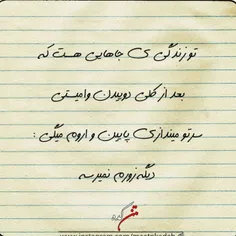 تو زندگی ی جاهایی هست که
بعد از کلی دوییدن وامیستی
سرتو میندازی پایین و اروم میگی :
دیگه زورم نمیرسه